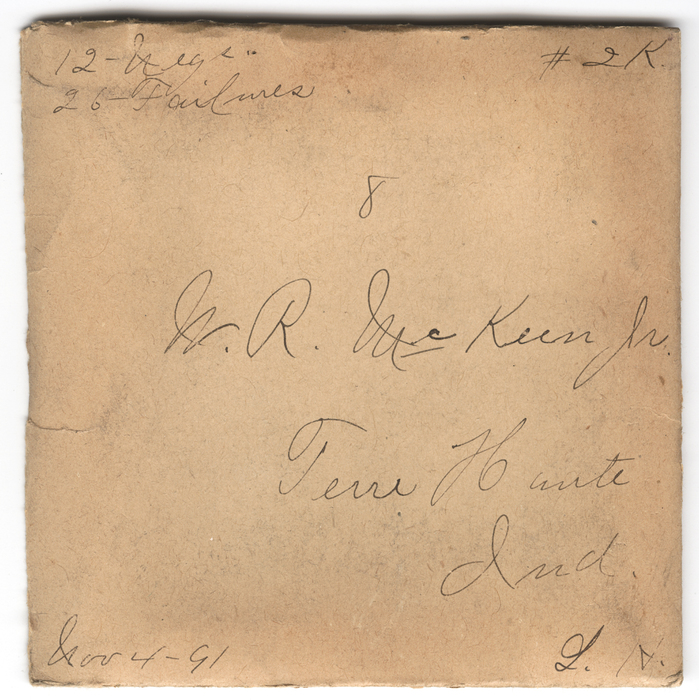 12-Negs.
# 2 K.
26-Failures
8
W. R. McKeen Jr.
Terre Haute
Ind.
Nov 4-91
L. N.